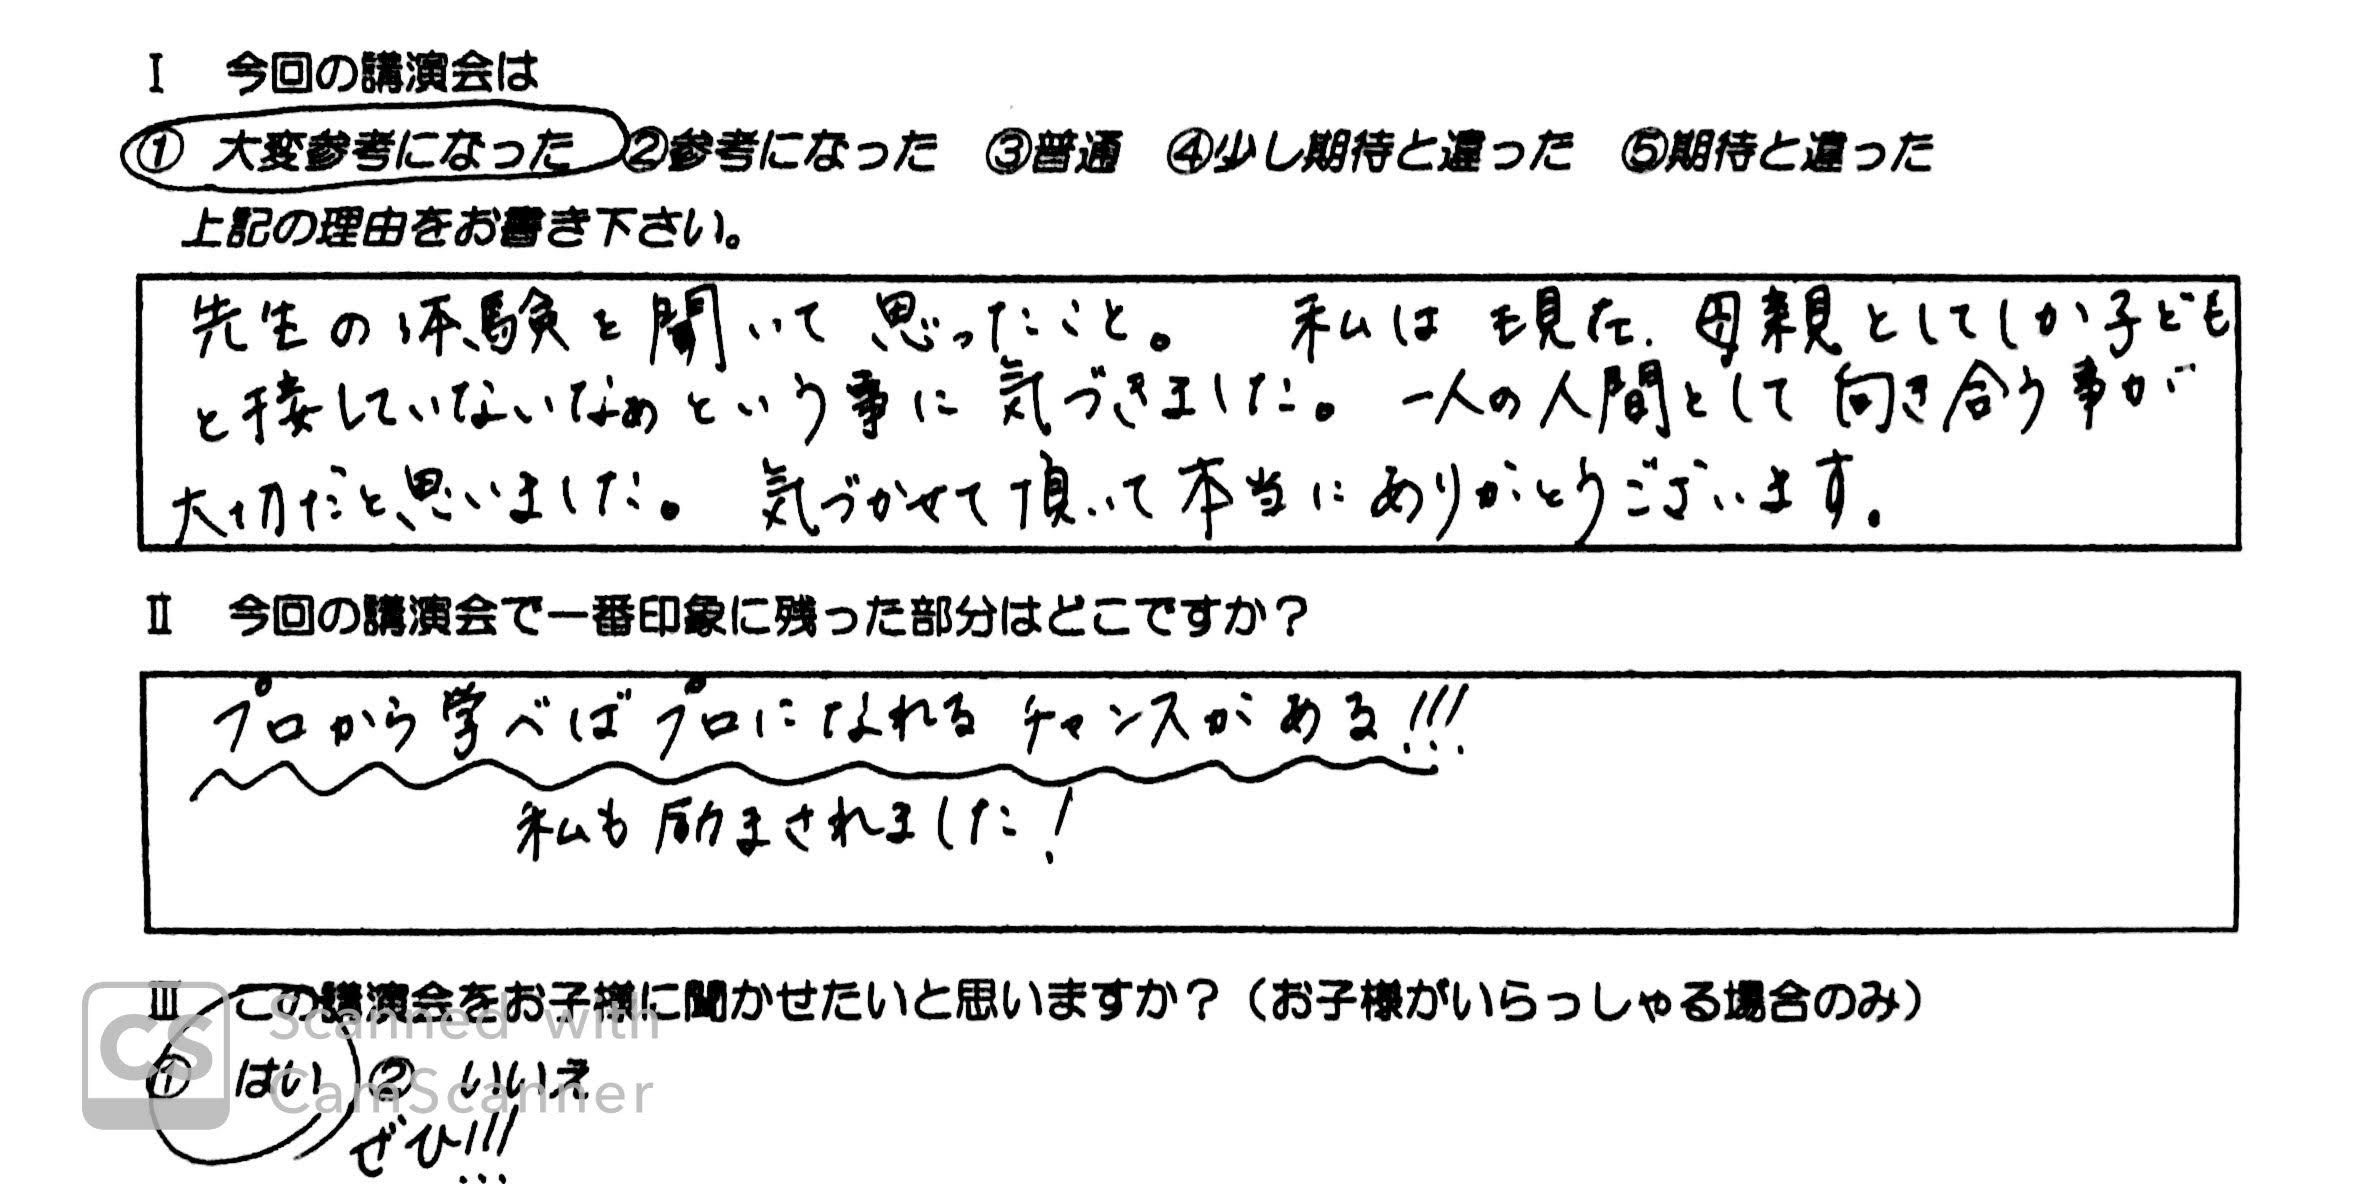 Ⅰ 今回の講演会は
① 大変参考になった ②参考になった ③普通 ④少し期待と違った ⑤期待と違った
上記の理由をお書き下さい。
先生の体験を聞いて思ったこと。 私は現在、母親としてしか子ども
と接していないなぁという事に気づきました。 一人の人間として向き合う事が
大切だと思いました。 気づかせて頂いて本当にありがとうございます。
Ⅱ 今回の講演会で一番印象に残った部分はどこですか？
プロから学べばプロになれるチャンスがある!!!
私も励まされました！
Ⅲ この講演会をお子様に聞かせたいと思いますか？（お子様がいらっしゃる場合のみ）
① はい ② いいえ
ぜひ!!!
CS Scanned with
CamScanner